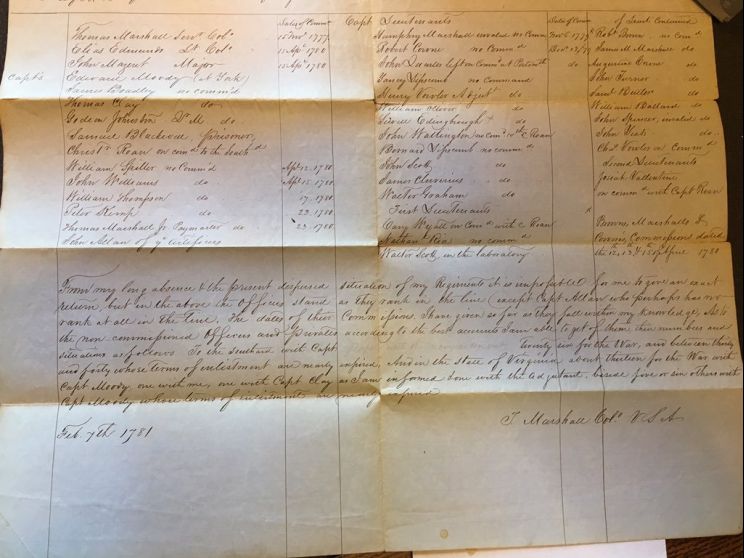 Dates of Comm.
Thomas Marshall Senr Colo 15 Novr 1777
Elias Edmunds Lt Colo 15 Apl 1780
John Mazent Major 15 Apl 1780
Capts Edward Moody (at York)
James Bradley no comm'd
Thomas Clay do
Gedeon Johnston Q M do
Samuel Blackwell, Prisoner,
Christr Roan on comd to the southd
William Spiller no Commd Apl 12. 1780
John Williams do Apl 15 1780
William Thompson do 17. 1780
Peter Kemp do 23. 1780
Thomas Marshall Jr Paymaster do 23. 1780
John Allan of ye artificers
Capt Lieutenants Dates of Comm
Humphry Marshall invaled no Comm
Robert Crowe no Commd
John Quarles left on Commd at Portsmth do
Yancey Lipscomb no Command
Henry Vowles Adjt do
William do
do
John Wallington on comd with C Roan
Bernard Lipscomb no commd
John Scott do
James do
Walter Graham do
First Lieutenants
Cary Wyatt on Comd with C Roan
Nathan no commd
Walter Scott, in the laboratory
of Lieuts Continued
Robt no comd
Saml M Marshall do
Augustine do
John Turner do
Saml Butler do
William Ballard do
John Spencer, invaled do
John do
Chs Vowles on Commd
Second Lieutenants
Josiah Vallentine
on commd with Capt Roan
Marshalls &
Commissions dated
the 12, 13, & 15th April 1780
From my long absence & the present dispersed situation of my Regiment it is impossible for me to give an exact
return, but in the above the Officers stand as they rank in the line (except Capt Allan who perhaps has no
rank at all in the line. The dates of their Commissions I have given so far as they fall within my knowledge. As to
the non commissioned Officers and Privates according to the best accounts I am able to get of them their numbers and
situations as follows To the southard with Capt twenty six for the War, and between thirty
and forty whose terms of inlistment are nearly expired, And in the State of Virginia about thirteen for the War, with
Capt Moody, one with me, one with Capt Clay as I am informed & one with the adjutant, beside five or six others with
Capt Moody whose terms of inlistment are nearly expired
Feb. 7th 1781
T Marshall Colo V S A